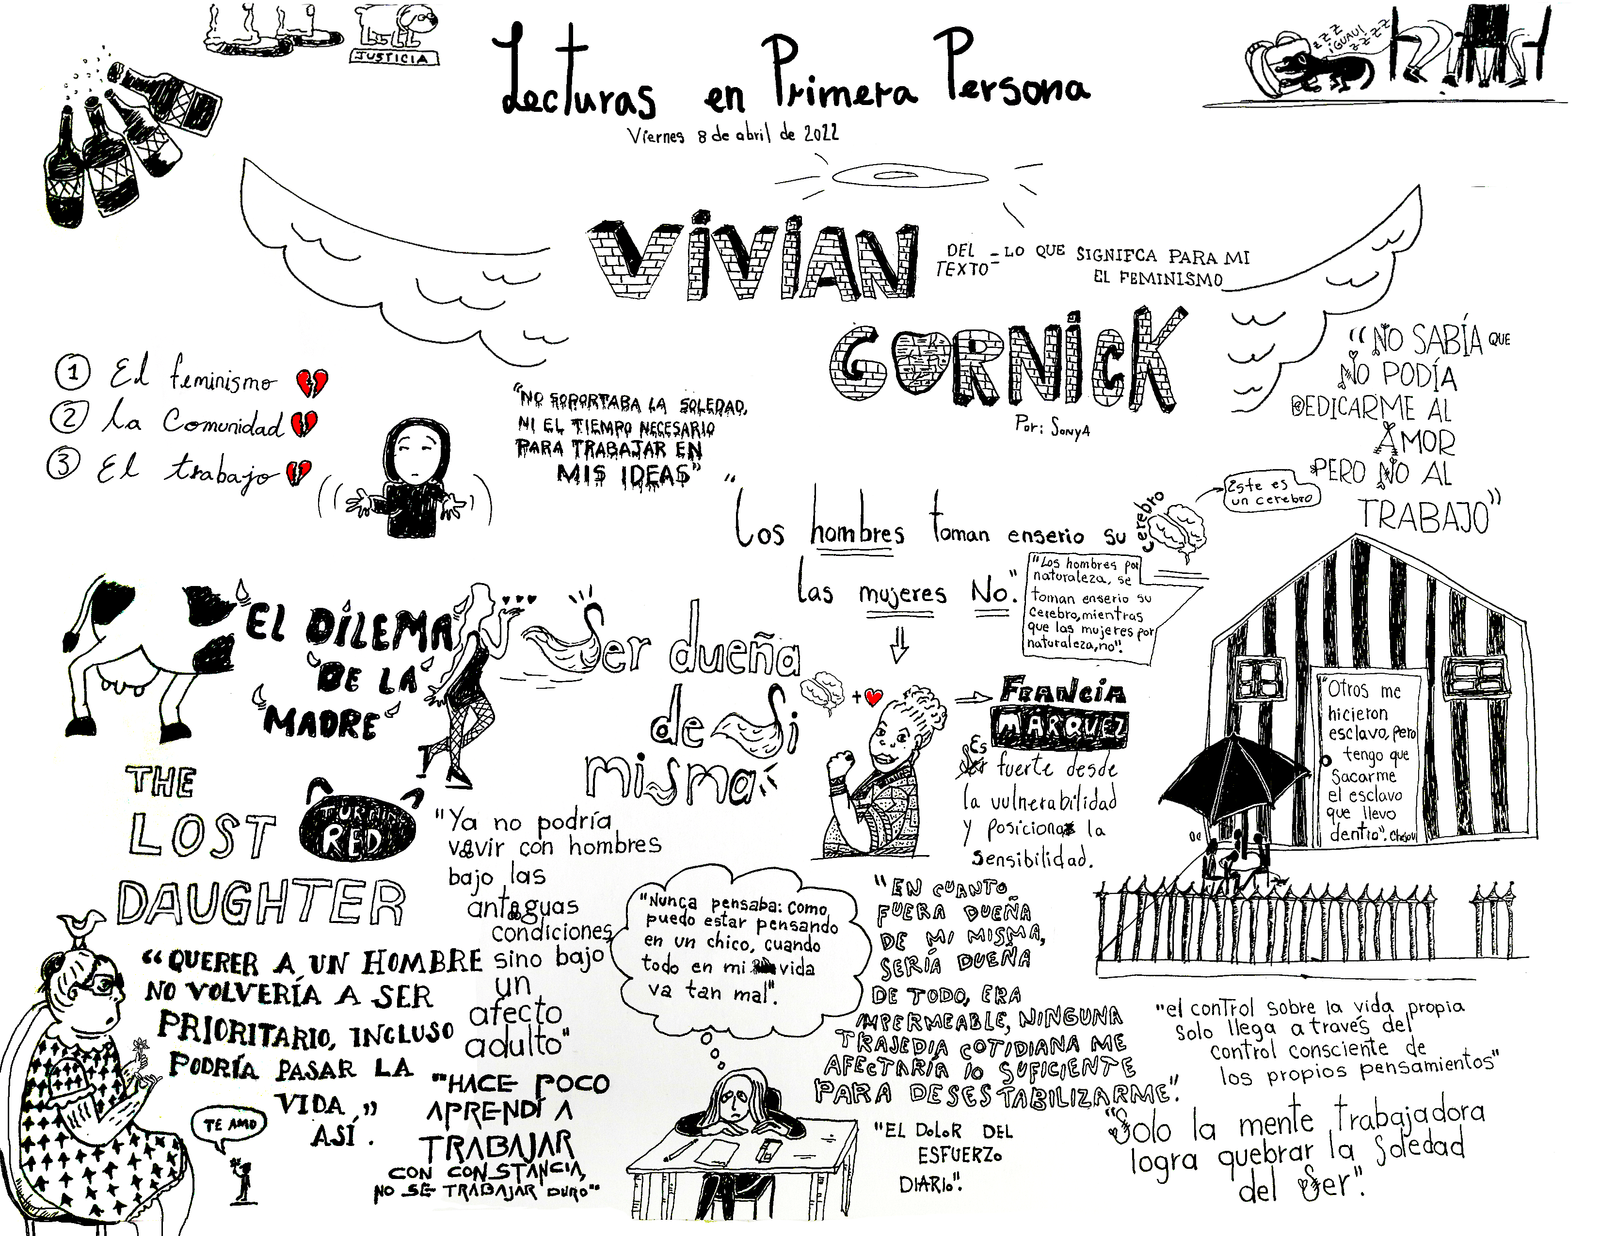 JUSTICIA
Lecturas en Primera Persona
Viernes 8 de abril de 2022
zzz
¡GUAU!
zzzz
VIVIAN
GORNICK
DEL
TEXTO = LO QUE SIGNIFCA PARA MI
EL FEMINISMO
Por: SonyA
1 El feminismo
2 la Comunidad
3 El trabajo
"NO SOPORTABA LA SOLEDAD,
NI EL TIEMPO NECESARIO
PARA TRABAJAR EN
MIS IDEAS"
"NO SABÍA QUE
NO PODÍA
DEDICARME AL
AMOR
PERO NO AL
TRABAJO"
"Los hombres toman enserio su cerebro
las mujeres No."
Este es
un cerebro
"Los hombres por
naturaleza, se
toman enserio su
cerebro, mientras
que las mujeres por
naturaleza, no".
"EL DILEMA
"DE LA"
"MADRE"
Ser dueña
de Si
misma
+
FRANCIA
MARQUEZ
Es
fuerte desde
la vulnerabilidad
y posiciona la
sensibilidad.
"Otros me
hicieron
esclavo, pero
tengo que
Sacarme
el esclavo
que llevo
dentro". Chejov
THE
LOST
DAUGHTER
TURNING
RED
"Ya no podría
vivir con hombres
bajo las
antiguas
condiciones,
sino bajo
un
afecto
adulto"
"QUERER A UN HOMBRE
NO VOLVERÍA A SER
PRIORITARIO, INCLUSO
PODRÍA PASAR LA
VIDA
ASÍ".
TE AMO
"HACE POCO
APRENDÍ A
TRABAJAR
CON CONSTANCIA,
NO SE TRABAJAR DURO"
"Nunca pensaba: Como
puedo estar pensando
en un chico, cuando
todo en mi vida
va tan mal".
"EN CUANTO
FUERA DUEÑA
DE MI MISMA,
SERÍA DUEÑA
DE TODO, ERA
IMPERMEABLE, NINGUNA
TRAJEDIA COTIDIANA ME
AFECTARÍA lo SUFICIENTE
PARA DESESTABILIZARME".
"EL DOLOR DEL
ESFUERZO
DIARIO".
"el control sobre la vida propia
solo llega a través del
control consciente de
los propios pensamientos"
"Solo la mente trabajadora
logra quebrar la Soledad
del Ser".